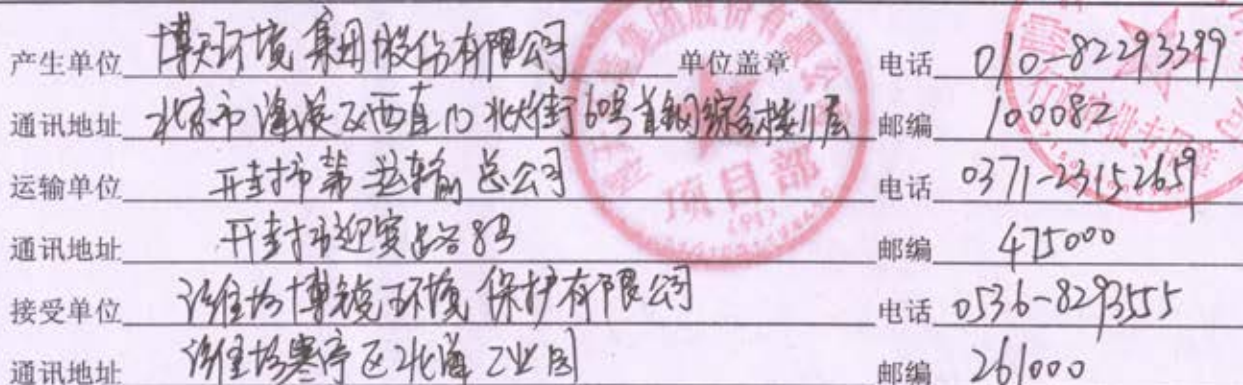 产生单位 博天环境集团股份有限公司 单位盖章 电话 010-82293399
通讯地址 北京市海淀区西直门北大街60号首钢综合楼11层 邮编 100082
运输单位 开封市第一运输总公司 电话 0371-23152659
通讯地址 开封市迎宾路8号 邮编 475000
接受单位 潍坊博锐环境保护有限公司 电话 0536-8293555
通讯地址 潍坊寒亭区北海工业园 邮编 261000
项目部